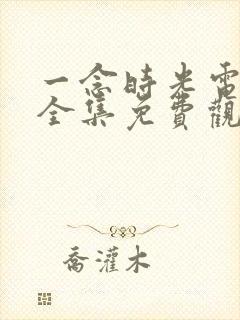 一念時光電
全集免費觀
喬灌木